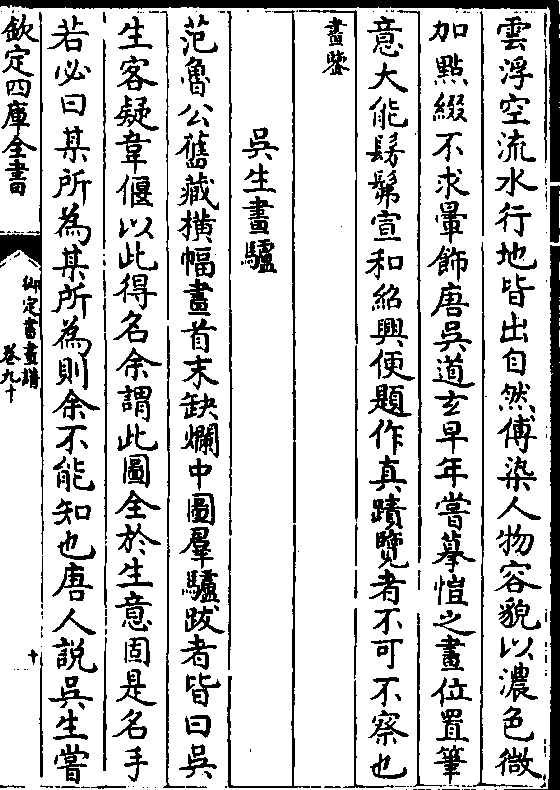 雲浮空流水行地皆出自然傅染人物容貌以濃色微
加點綴不求暈飾唐吳道玄早年嘗摹愷之畫位置筆
意大能髣髴宣和紹興便題作真蹟覽者不可不察也
畫鑒
吳生畫驢
范魯公舊藏橫幅畫首末缺爛中圖羣驢跋者皆曰吳
生客疑韋偃以此得名余謂此圖全於生意固是名手
若必曰某所為某所為則余不能知也唐人說吳生嘗
欽定四庫全書
御定書畫譜
卷九十
十